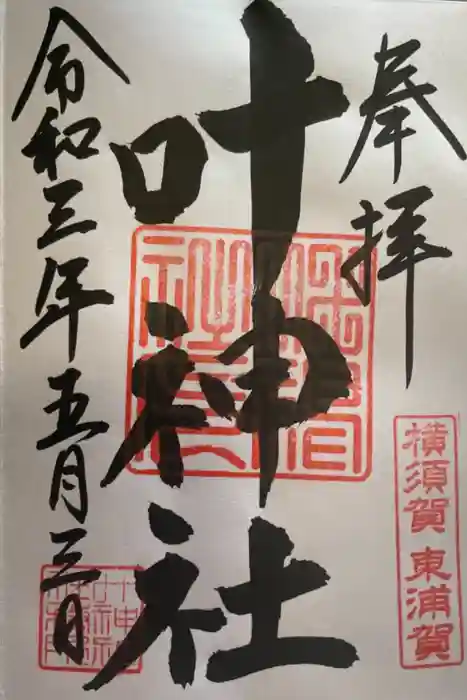 奉拝
横須賀 東浦賀
叶神社
令和三年五月三日